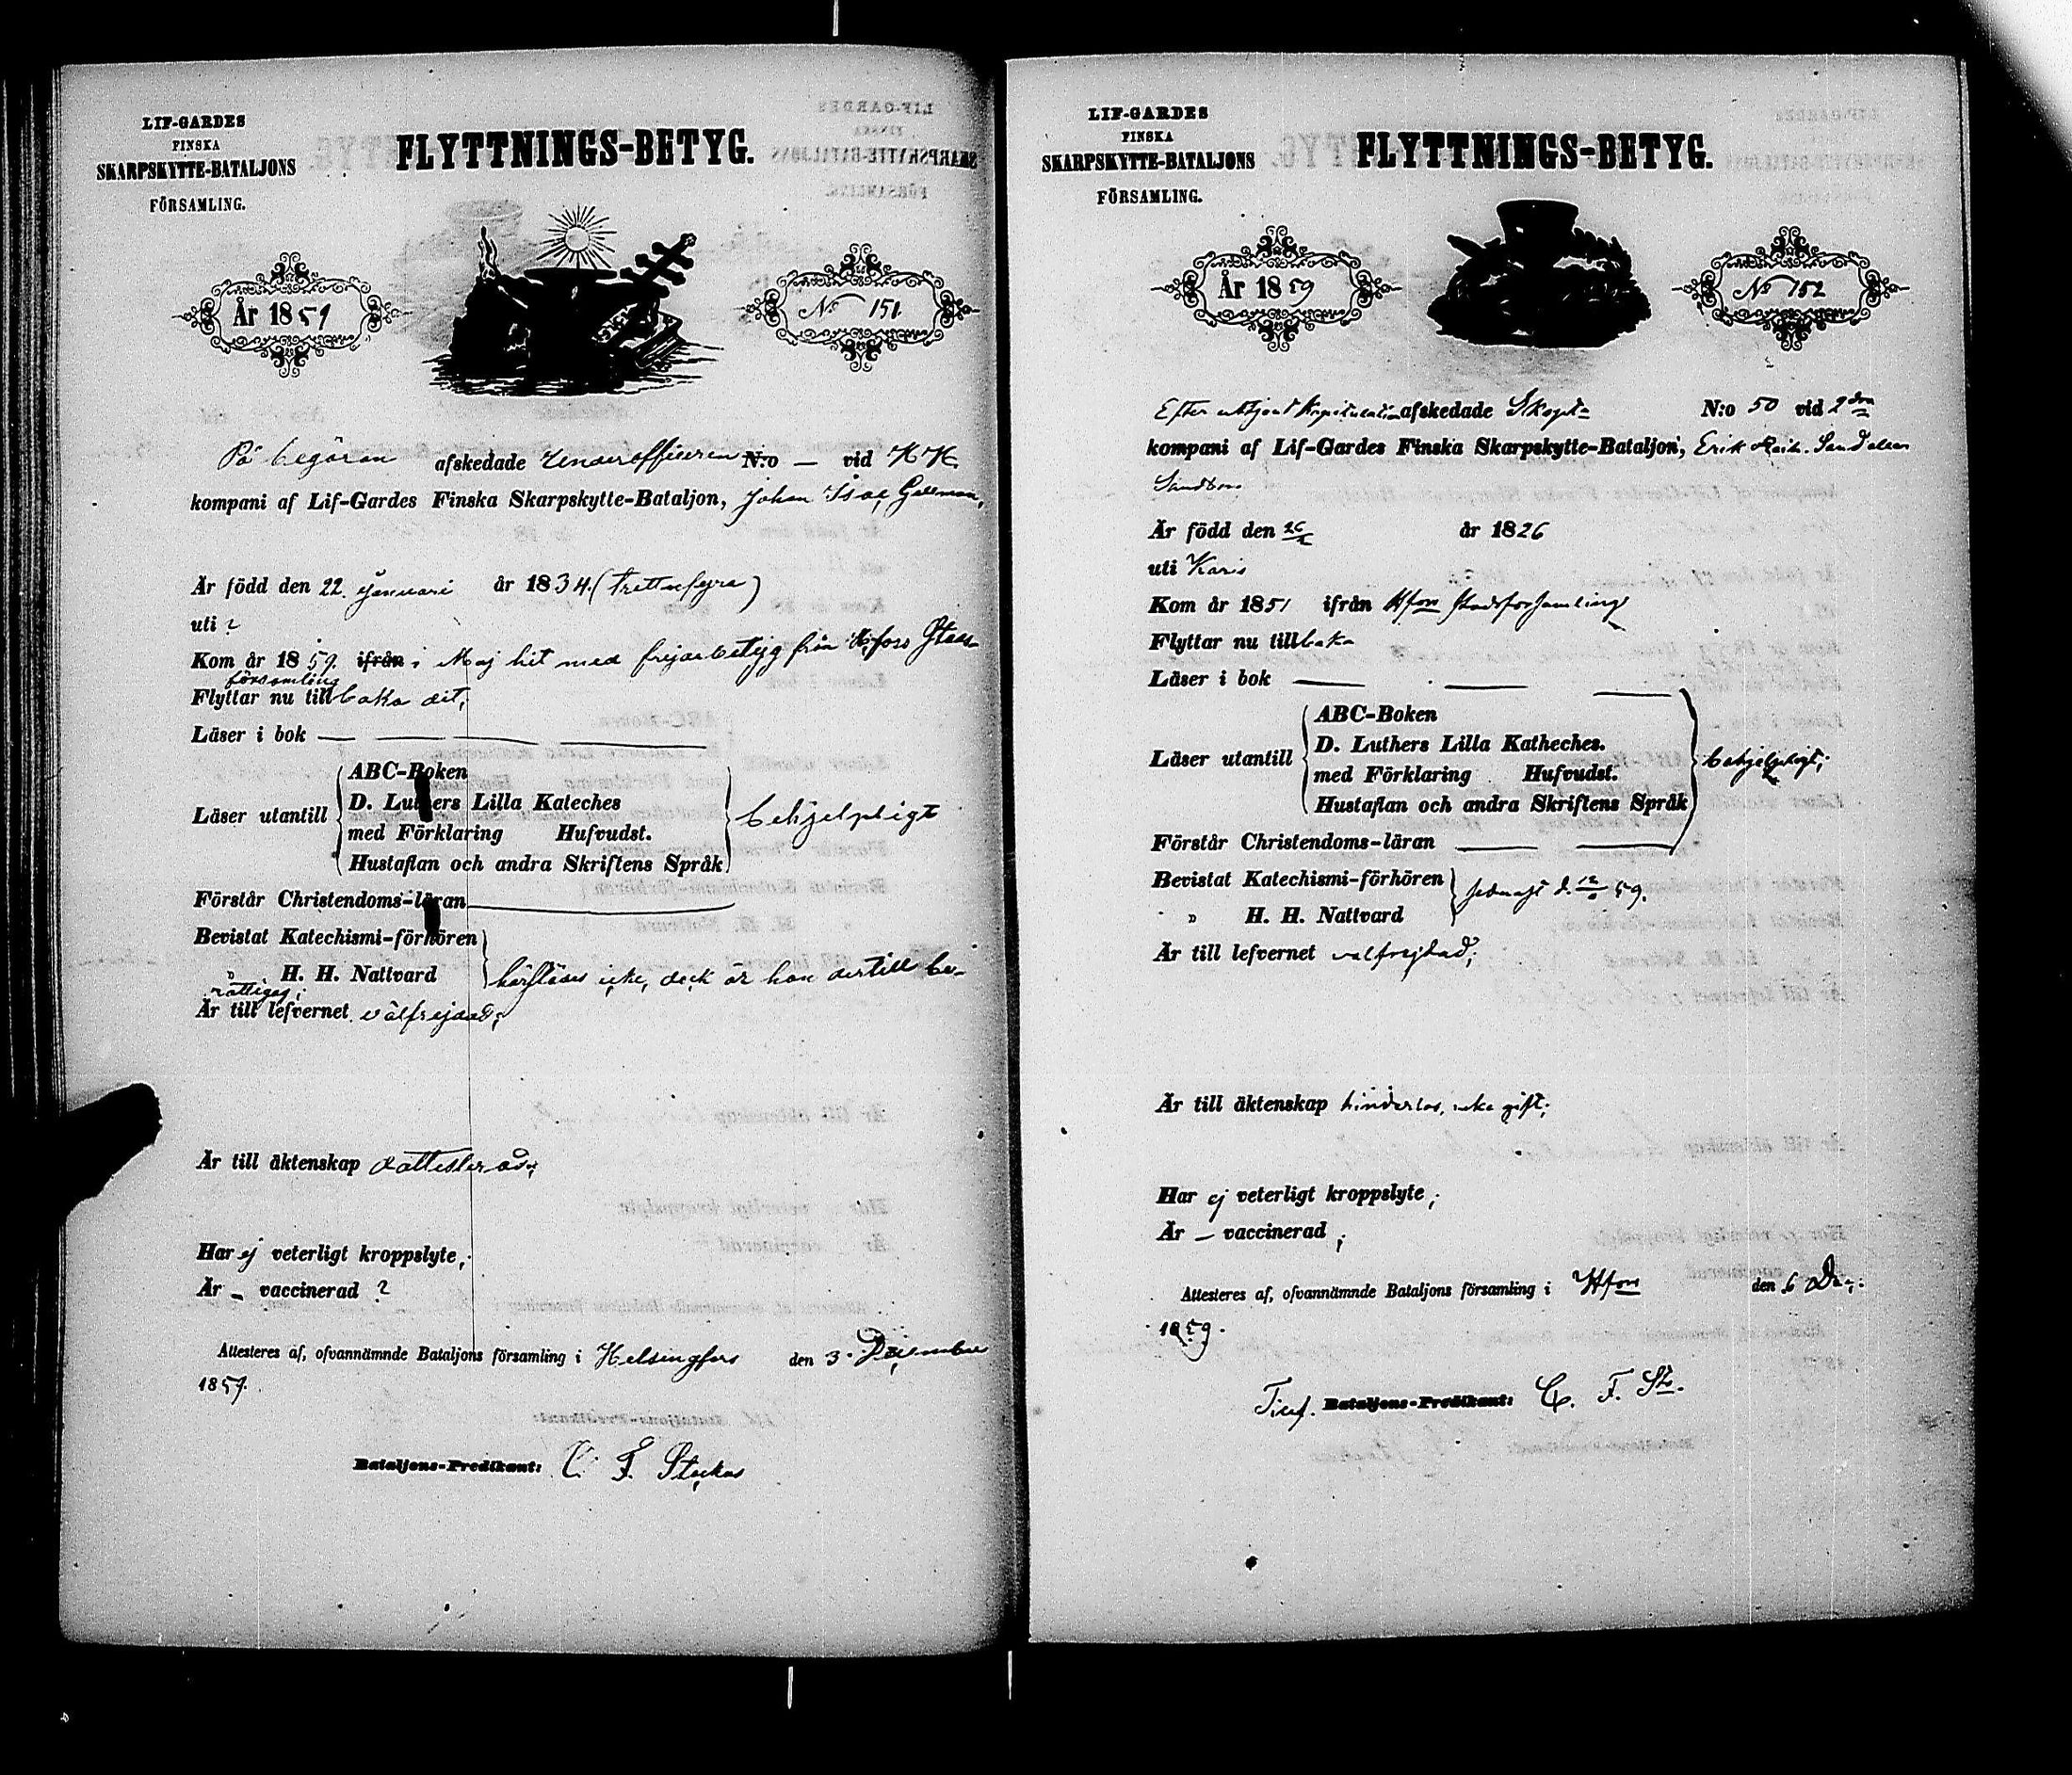 LIF-GARDES
FINSKA
SKARPSKYTTE-BATALJONS
FÖRSAMLING.
FLYTTNINGS-BETYG.
År 1859
No 151
På begäran afskedade Underofficeren N:o — vid
kompani af Lif-Gardes Finska Skarpskytte-Bataljon, Johan Isac
Är född den 22. Januari år 1834. (trettiofyra)
uti ?
Kom år 1859. ifrån i Maj hit med frejdebetyg från H:fors Stads-
församling
Flyttar nu tillbaka dit;
Läser i bok — — — —
Läser utantill
ABC-Boken
D. Luthers Lilla Kateches
med Förklaring Hufvudst.
Hustaflan och andra Skriftens Språk
behjelpligt
Förstår Christendoms-läran —
Bevistat Katechismi-förhören
" H. H. Nattvard
icke, dock är han dertill be-
rättigad;
Är till lefvernet välfrejdad;
Är till äktenskap
Har ej veterligt kroppslyte;
Är — vaccinerad ?
Attesteres af, ofvannämnde Bataljons församling i Helsingfors den 3. December
1859.
Bataljons-Predikant: C. F.
LIF-GARDES
FINSKA
SKARPSKYTTE-BATALJONS
FÖRSAMLING.
FLYTTNINGS-BETYG.
År 1859
No 152
Efter uttjent Kapitulation afskedade N:o 50 vid 2dra
kompani af Lif-Gardes Finska Skarpskytte-Bataljon, Erik
Är född den år 1826
uti Karis
Kom år 1851 ifrån Hfors stadsförsamling
Flyttar nu tillbaka
Läser i bok — — —
Läser utantill
ABC-Boken
D. Luthers Lilla Katheches.
med Förklaring Hufvudst.
Hustaflan och andra Skriftens Språk
behjelpligt;
Förstår Christendoms-läran — —
Bevistat Katechismi-förhören
" H. H. Nattvard
sednast d. 59.
Är till lefvernet välfrejdad;
Är till äktenskap hinderlös, icke gift;
Har ej veterligt kroppslyte;
Är — vaccinerad;
Attesteres af, ofvannämnde Bataljons församling i Hfors den 6 Dec:
1859.
Bataljons-Predikant: C. F. St.